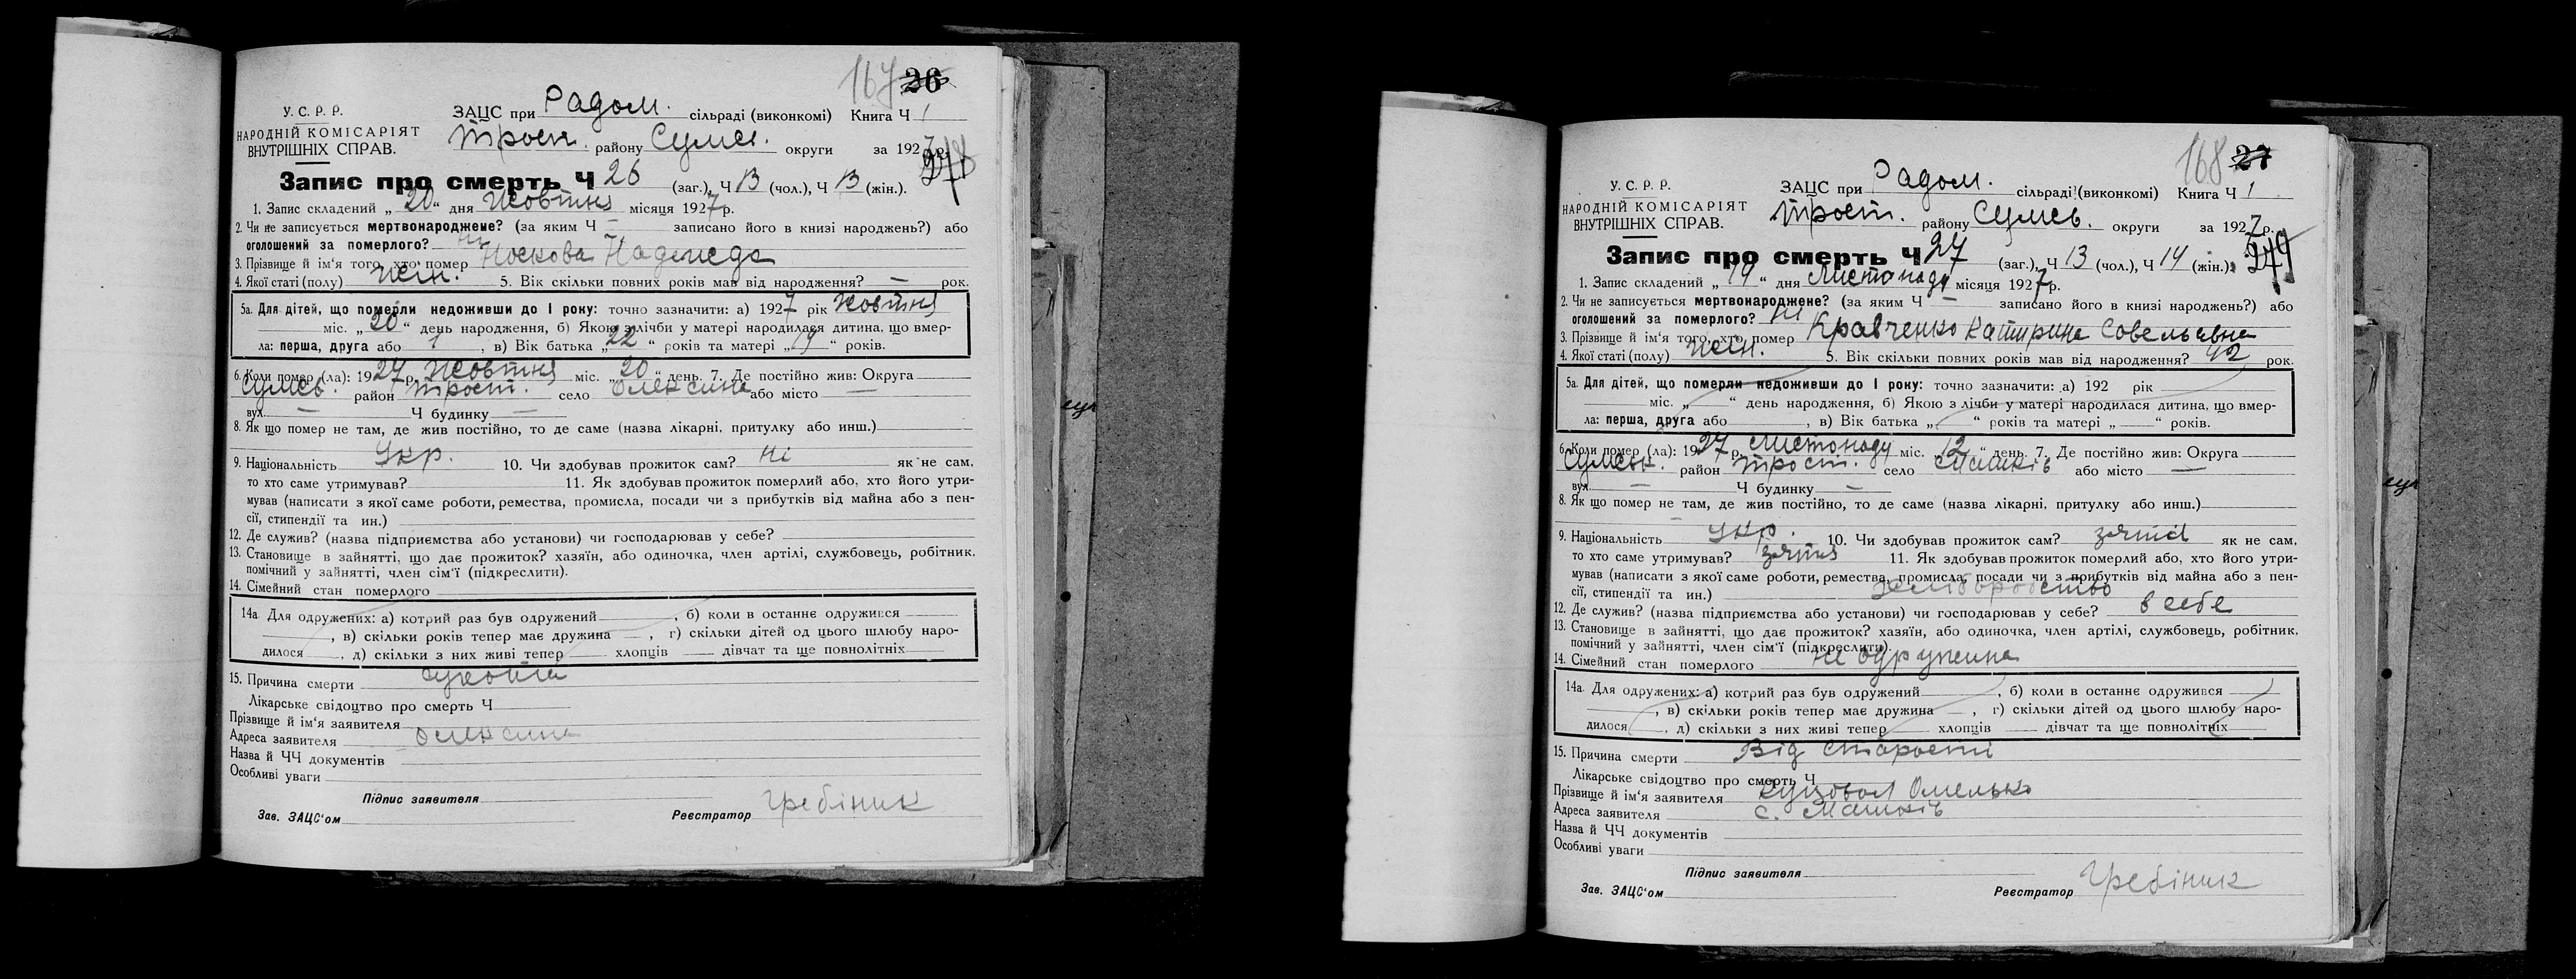 167 26
У. С. Р. Р.
НАРОДНІЙ КОМІСАРІЯТ
ВНУТРІШНІХ СПРАВ.
ЗАЦС при Радом. сільраді (виконкомі) Книга Ч 1
Трост. району Сумськ. округи за 1927 р.
Запис про смерть Ч 26 (заг.), Ч 13 (чол.), Ч 13 (жін.).
1. Запис складений „ 20 “ дня Жовтня місяця 1927 р.
2. Чи не записується мертвонароджене? (за яким Ч — записано його в книзі народжень?) або
оголошений за померлого? ні
3. Прізвище й ім'я того, хто помер Носкова Надежда
4. Якої статі (полу) жін. 5. Вік скільки повних років мав від народження? — рок.
5а. Для дітей, що померли недоживши до 1 року: точно зазначити: а) 1927 рік Жовтня
міс. „ 20 “ день народження, б) Якою з лічби у матері народилася дитина, що вмер-
ла: перша, друга або 1 , в) Вік батька „ 22 “ років та матері „ 19 “ років.
6. Коли помер (ла): 1927 р. Жовтня міс. „ 20 “ день. 7. Де постійно жив: Округа
Сумськ. район Трост. село Олексина або місто —
вул. — Ч будинку —
8. Як що помер не там, де жив постійно, то де саме (назва лікарні, притулку або инш.)
9. Національність Укр. 10. Чи здобував прожиток сам? Ні як не сам,
то хто саме утримував? 11. Як здобував прожиток померлий або, хто його утри-
мував (написати з якої саме роботи, ремества, промисла, посади чи з прибутків від майна або з пен-
сії, стипендії та ин.)
12. Де служив? (назва підприємства або установи) чи господарював у себе?
13. Становище в зайнятті, що дає прожиток? хазяїн, або одиночка, член артілі, службовець, робітник,
помічний у зайнятті, член сім'ї (підкреслити).
14. Сімейний стан померлого
14а. Для одружених: а) котрий раз був одружений , б) коли в останнє одружився
, в) скільки років тепер має дружина , г) скільки дітей од цього шлюбу наро-
дилося , д) скільки з них живі тепер хлопців дівчат та ще повнолітніх
15. Причина смерти
Лікарське свідоцтво про смерть Ч
Прізвище й ім'я заявителя
Адреса заявителя Олексина
Назва й ЧЧ документів
Особливі уваги
Підпис заявителя
Зав. ЗАЦС'ом Реєстратор Гребіник
168 27
У. С. Р. Р.
НАРОДНІЙ КОМІСАРІЯТ
ВНУТРІШНІХ СПРАВ.
ЗАЦС при Радом. сільраді (виконкомі) Книга Ч 1
Трост. району Сумськ. округи за 1927 р.
Запис про смерть Ч 27 (заг.), Ч 13 (чол.), Ч 14 (жін.).
1. Запис складений „ 14 “ дня Листопада місяця 1927 р.
2. Чи не записується мертвонароджене? (за яким Ч — записано його в книзі народжень?) або
оголошений за померлого? Ні
3. Прізвище й ім'я того, хто помер Кравченко Катирина Савельевна
4. Якої статі (полу) жін. 5. Вік скільки повних років мав від народження? 42 рок.
5а. Для дітей, що померли недоживши до 1 року: точно зазначити: а) 192 рік
міс. „ “ день народження, б) Якою з лічби у матері народилася дитина, що вмер-
ла: перша, друга або , в) Вік батька „ “ років та матері „ “ років.
6. Коли помер (ла): 1927 р. Листопаду міс. „ 12 “ день. 7. Де постійно жив: Округа
Сумськ. район Трост. село Машків або місто —
вул. — Ч будинку —
8. Як що помер не там, де жив постійно, то де саме (назва лікарні, притулку або инш.)
9. Національність Укр. 10. Чи здобував прожиток сам? як не сам,
то хто саме утримував? зятя 11. Як здобував прожиток померлий або, хто його утри-
мував (написати з якої саме роботи, ремества, промисла, посади чи з прибутків від майна або з пен-
сії, стипендії та ин.) хліборобство
12. Де служив? (назва підприємства або установи) чи господарював у себе? в себе
13. Становище в зайнятті, що дає прожиток? хазяїн, або одиночка, член артілі, службовець, робітник,
помічний у зайнятті, член сім'ї (підкреслити).
14. Сімейний стан померлого не одружина
14а. Для одружених: а) котрий раз був одружений , б) коли в останнє одружився
, в) скільки років тепер має дружина , г) скільки дітей од цього шлюбу наро-
дилося , д) скільки з них живі тепер хлопців дівчат та ще повнолітніх
15. Причина смерти Від старости
Лікарське свідоцтво про смерть Ч
Прізвище й ім'я заявителя Куцовол Омелько
Адреса заявителя с. Машків
Назва й ЧЧ документів
Особливі уваги
Підпис заявителя
Зав. ЗАЦС'ом Реєстратор Гребіник